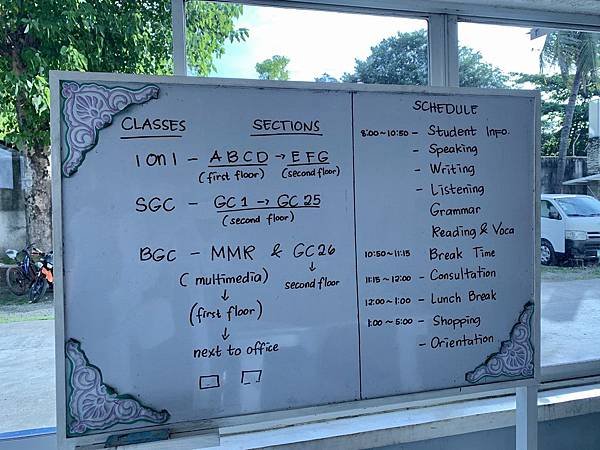 CLASSES SECTIONS
1 on 1 - A B C D → E F G
(first floor) (second floor)
SGC - GC 1 → GC 25
(second floor)
BGC - MMR & GC 26
(multimedia) ↓
↓ second floor
(first floor)
↓
next to office
SCHEDULE
8:00~10:50 - Student Info.
- Speaking
- Writing
- Listening
Grammar
Reading & Voca
10:50~11:15 Break Time
11:15~12:00 - Consultation
12:00~1:00 - Lunch Break
1:00~5:00 - Shopping
- Orientation